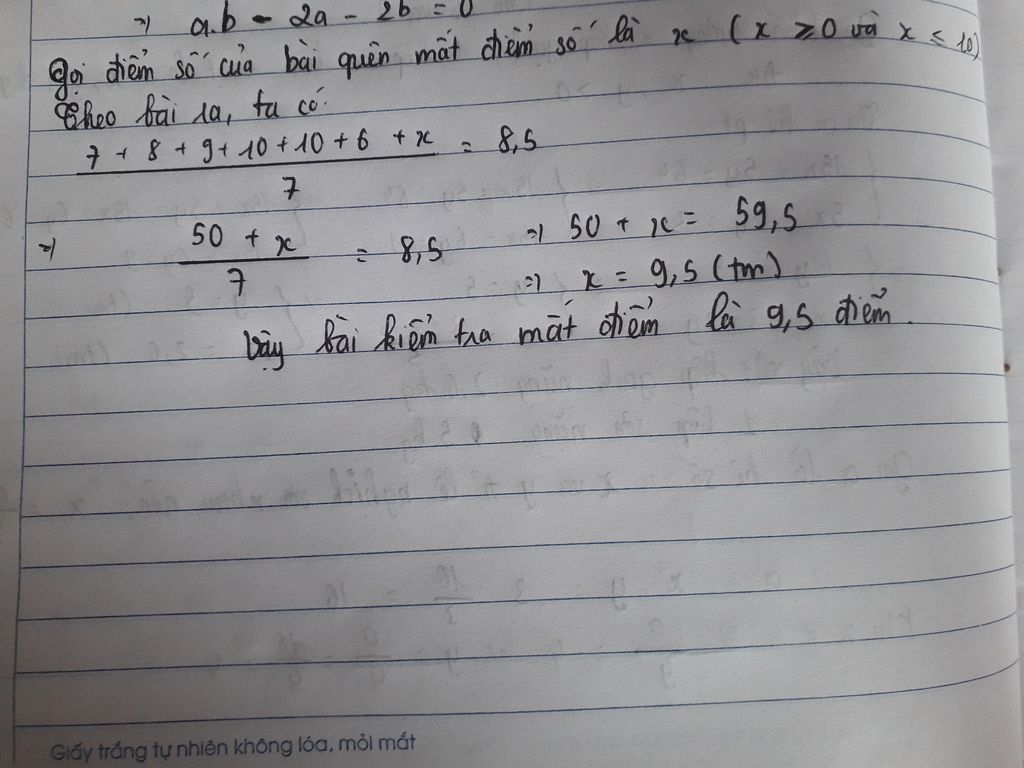 => a.b - 2a - 2b = 0
Gọi điểm số của bài quên mất điểm số là x ( x ≥ 0 và x ≤ 10)
Theo bài ra, ta có:
7 + 8 + 9 + 10 + 10 + 6 + x / 7 = 8,5
=> 50 + x / 7 = 8,5 => 50 + x = 59,5
=> x = 9,5 (tm)
Vậy bài kiểm tra mất điểm là 9,5 điểm.
Giấy trắng tự nhiên không lóa, mỏi mắt